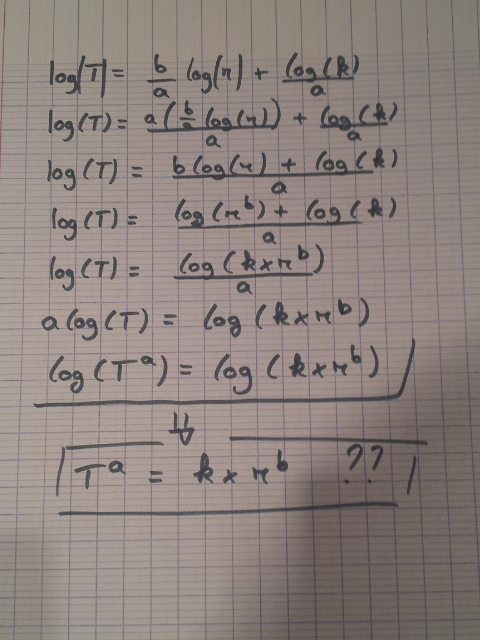 log(T) = b/a log(r) + log(k)/a
log(T) = a(b/a log(r))/a + log(k)/a
log(T) = (b log(r) + log(k))/a
log(T) = (log(r^b) + log(k))/a
log(T) = log(k×r^b)/a
a log(T) = log(k×r^b)
log(T^a) = log(k×r^b)
⇓
T^a = k × r^b ??